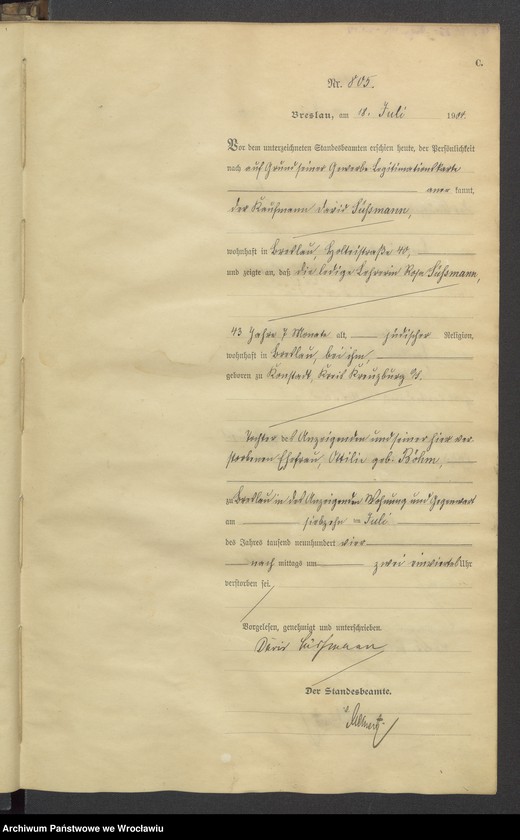 C.
Nr. 805.
Breslau, am 18. Juli 1904.
Vor dem unterzeichneten Standesbeamten erschien heute, der Persönlichkeit
nach auf Grund seiner Gewerbe Legitimationskarte
aner kannt,
der Kaufmann David Süßmann,
wohnhaft in Breslau, Holteistraße 40,
und zeigte an, daß die ledige Lehrerin Rosa Süßmann,
43 Jahre 7 Monate alt, jüdischer Religion,
wohnhaft in Breslau, bei ihm,
geboren zu Konstadt, Kreis Kreuzburg O/S.
Tochter des Anzeigenden und seiner hier ver
storbenen Ehefrau, Ottilie geb. Böhm,
zu Breslau in des Anzeigenden Wohnung und Gegenwart
am siebzehn ten Juli
des Jahres tausend neunhundert vier
nach mittags um zwei einviertel Uhr
verstorben sei.
Vorgelesen, genehmigt und unterschrieben.
David Süssmann
Der Standesbeamte.
Archiwum Państwowe we Wrocławiu